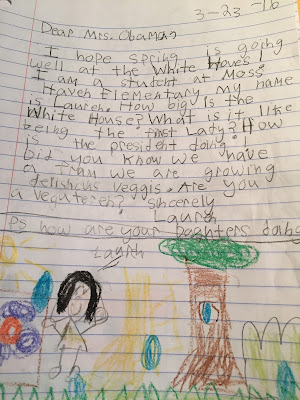 3-23-16
Dear Mrs. Obama,
I hope spring is going
well at the White Hove's.
I am a student at Moss
Haven Elementary my name
is Lauren. How big is the
White House? What is it like
being the first Lady? How
is the president doing?
Did you know we have
a we are growing
delishcus veggis. Are you
a vegutereh? Sincerely
Lauren
PS how are your daghters doing
Lauren